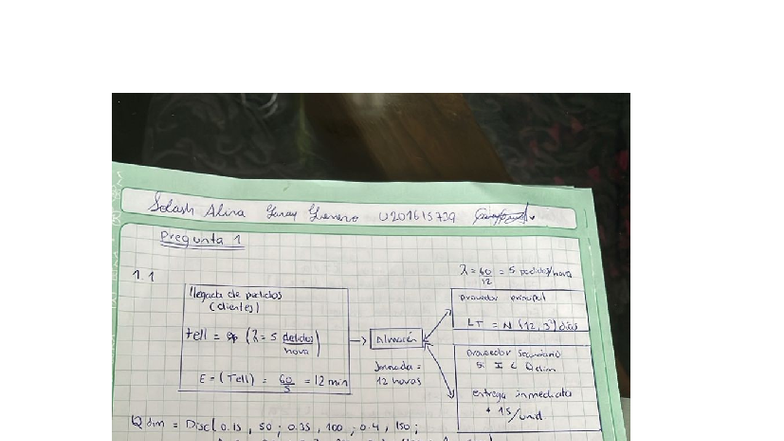 Solash Alina Garay Guerrero U201615739
Pregunta 1
1.1
λ = 60/12 = 5 pedidos/hora
llegada de pedidos
(clientes)
tell = exp (λ = 5 pedidos/hora)
E = (Tell) = 60/5 = 12 min
Almacén
Jornada =
12 horas
proveedor principal
LT = N (12, 3²) días
proveedor secundario
si I < Qdim
entrega inmediata
+ 1$/unid
Q dim = Disc( 0.15, 50 ; 0.35, 100 ; 0.4, 150 ;